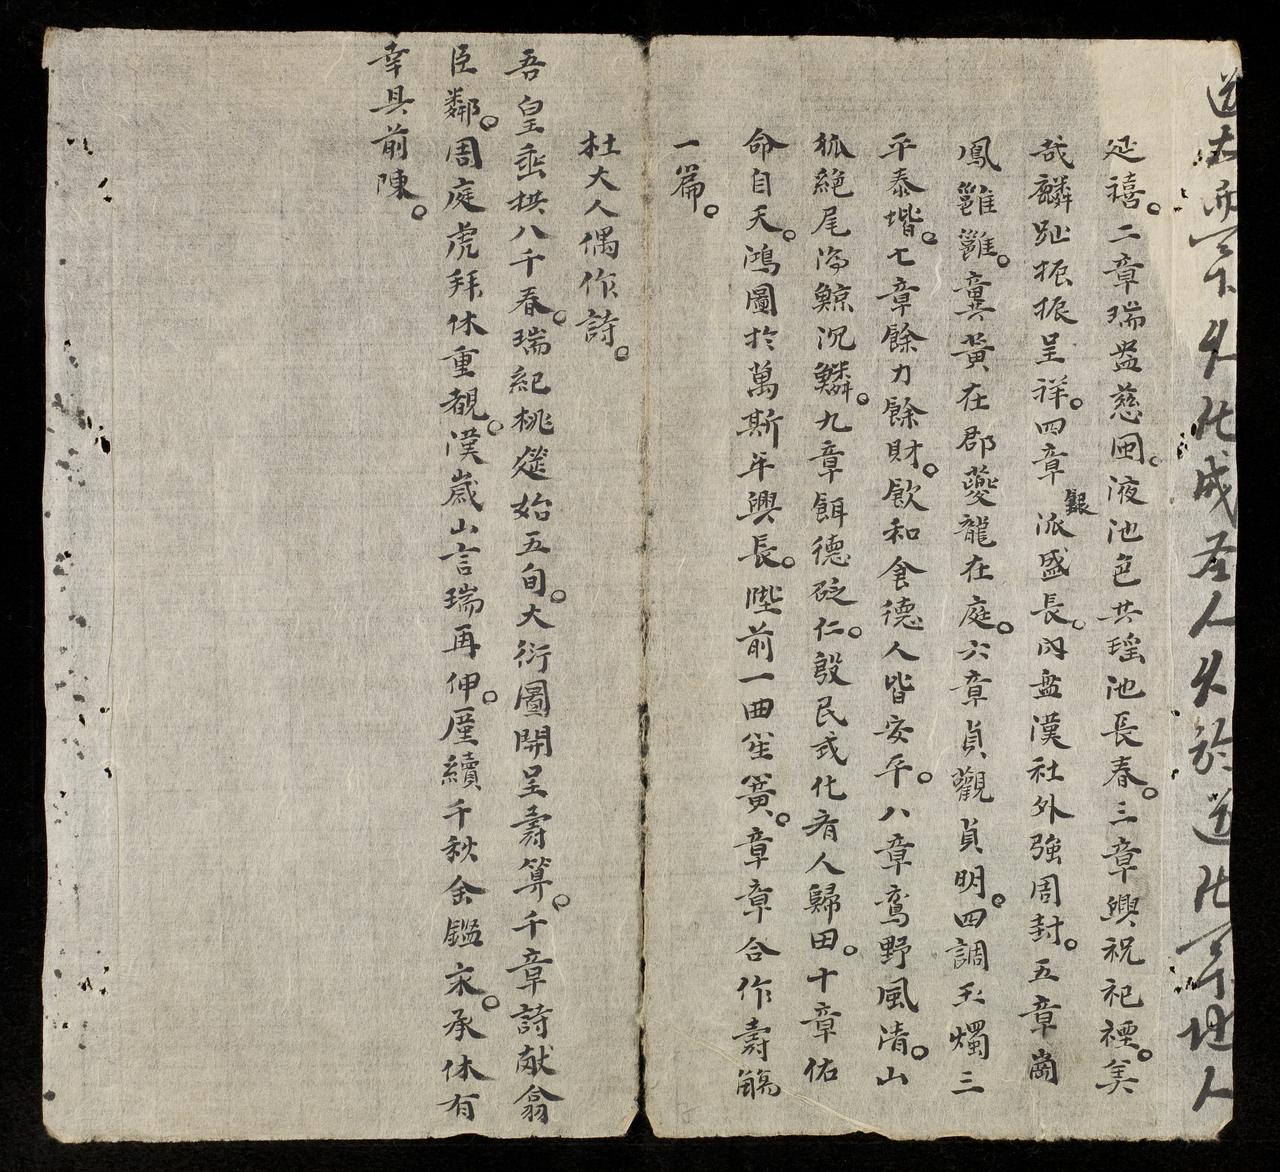 道
久化成圣人久於道化
延禧。二章瑞盎慈闈。液池色共瑶池長春。三章興祝祀禋。美
哉麟趾振振呈祥。四章銀派盛長。内盘漢社外強周封。五章崗
鳳雝雝。龔黄在郡夔龍在庭。六章貞觀貞明。四調玉燭三
平泰堦。七章餘力餘財。飲和食德人皆安平。八章鸞野風清。山
狐絶尾海鯨沉鱗。九章餌德砭仁。殷民式化有人歸田。十章佑
命自天。鴻圖於萬斯年興長。陛前一曲笙簧。章章合作壽觴
一篇。
杜大人偶作詩。
吾皇垂拱八千春。瑞紀桃筵始五旬。大衍圖開呈壽算。千章詩献翕
臣鄰。周庭虎拜休重覩。漢嵗山言瑞再伸。賡續千秋金鑑宋。承休有
幸具前陳。